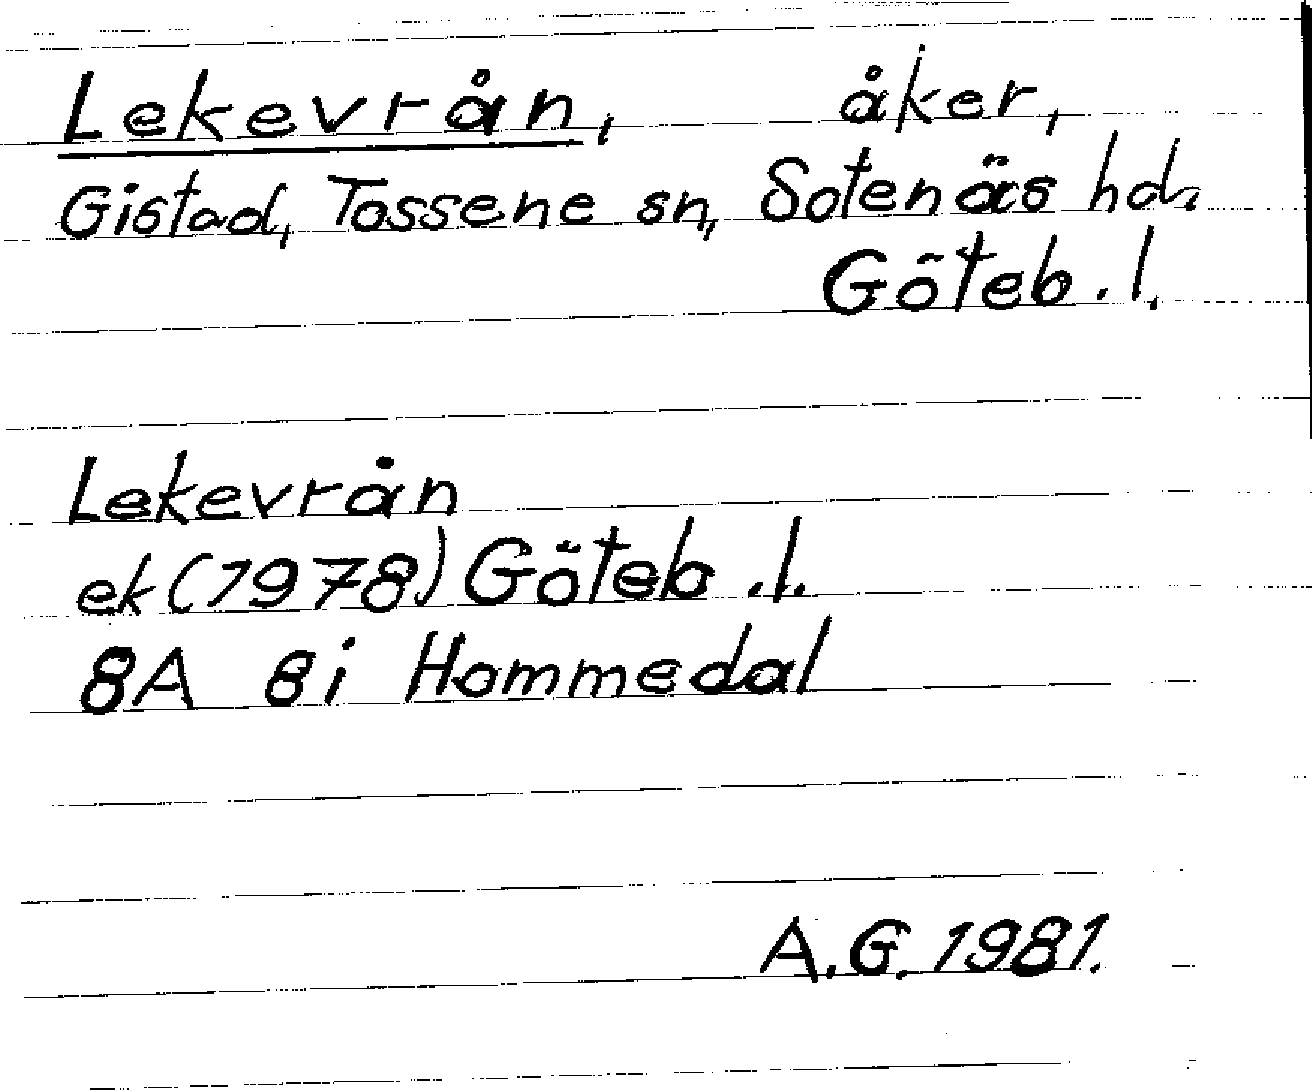 Lekevrån, åker,
Gistad, Tossene sn, Sotenäs hd.
Göteb. l.
Lekevrån
ek (1978) Göteb. l.
8A 8i Hommedal
A.G. 1981.